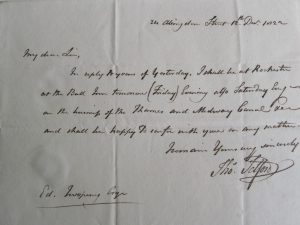 24 Abingdon Street 12th Decr. 1822
My dear Sir,
In reply to yours of Yesterday, I shall be at Rochester
at the Bull Inn tomorrow (Friday) Evening also Saturday Eveg
on the business of the Thames and Medway Canal
and shall be happy to confer with you on any matter
I remain Yours very sincerely
Thos. Telford
Ed. Esqr